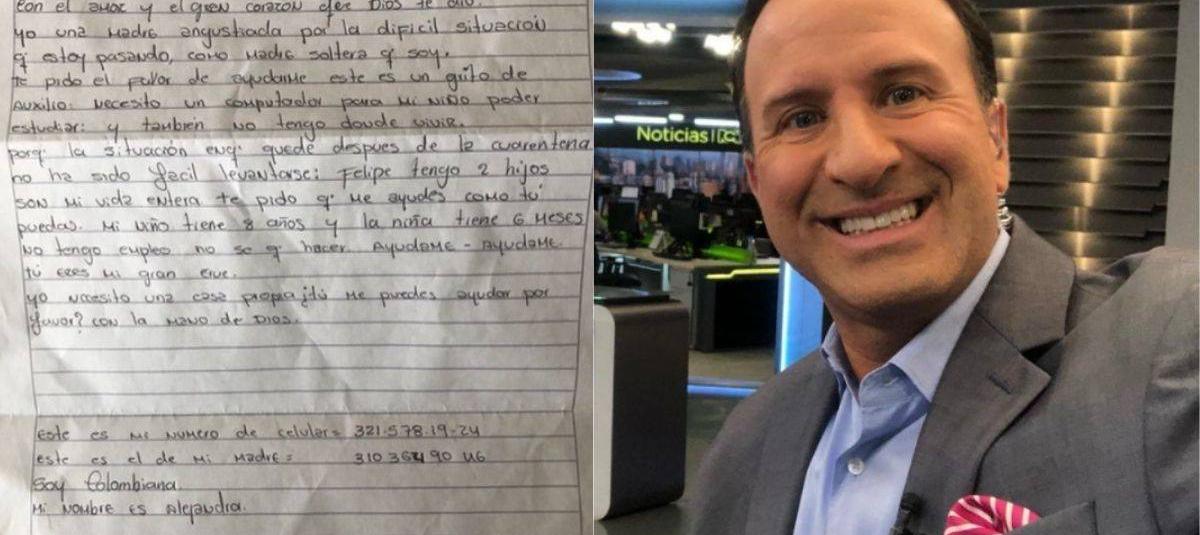 con el amor y el gran corazon que Dios te dio.
yo una Madre angustiada por la dificil situacion
q' estoy pasando, como Madre soltera q' soy.
te pido el favor de ayudarme este es un grito de
Auxilio: necesito un computador para mi niño poder
estudiar: y tambien no tengo donde vivir.
porq' la situación enq' quede despues de la cuarentena
no ha sido facil levantarse: Felipe tengo 2 hijos
son mi vida entera te pido q' me ayudes como tú
puedas. Mi niño tiene 8 años y la niña tiene 6 meses
No tengo empleo no se q' hacer. Ayudame - Ayudame.
tú eres mi gran
yo necesito una casa propia ¡tú me puedes ayudar por
favor? con la mano de Dios.
este es mi numero de celular = 321.578.19-24
este es el de mi Madre = 310 364 90 46
Soy Colombiana.
Mi nombre es Alejandra.
Noticias